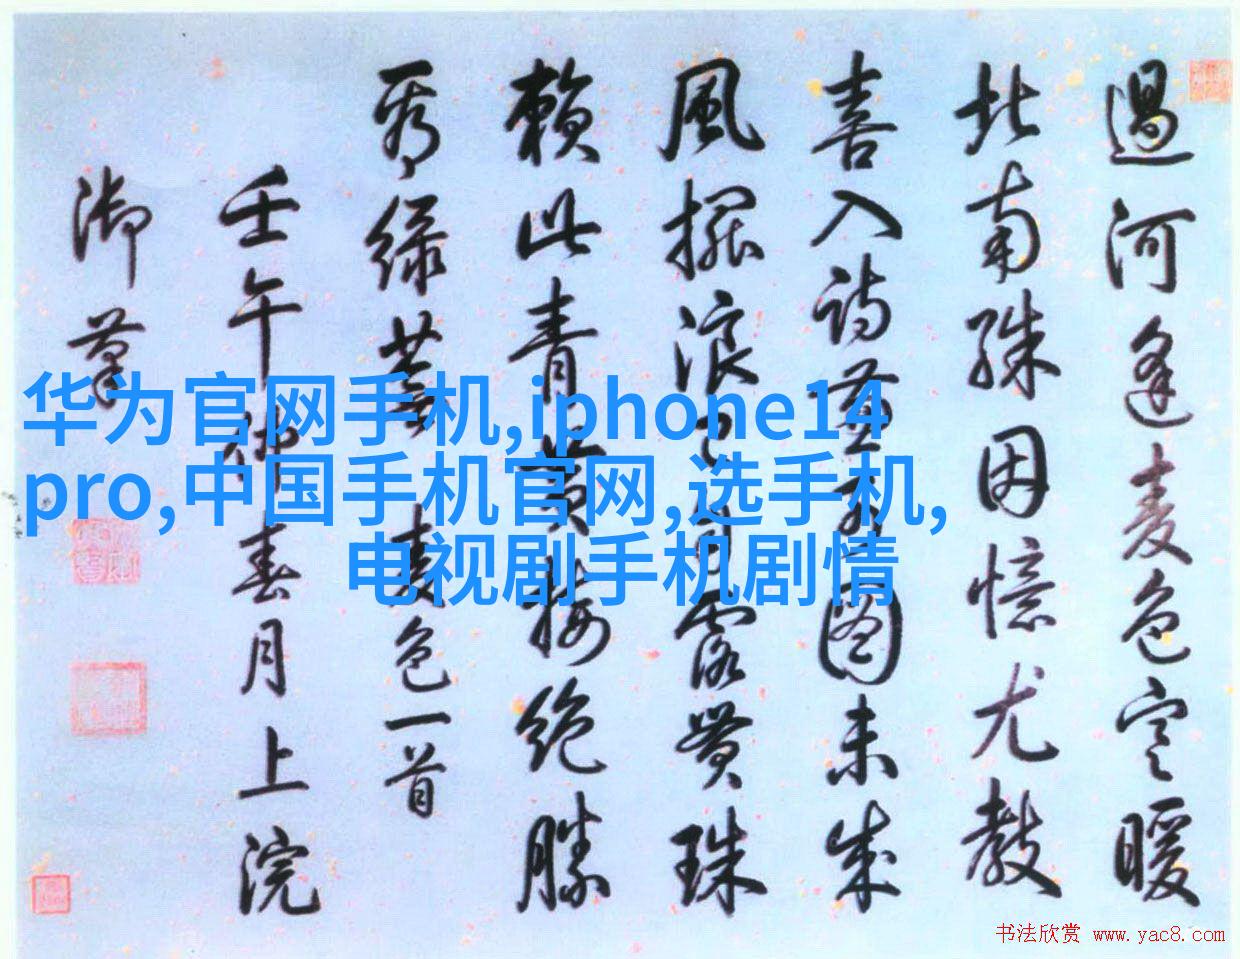 過河逢麦色寒暖
北南殊因憶尤教
喜入詩
圖未成
風擺浪
露貫珠
賴此青
絶勝
秀緑
麦色一首
壬午仲春月上浣
御筆
华为官网手机,iphone14
pro,中国手机官网,选手机,
电视剧手机剧情
书法欣赏 www.yac8.com